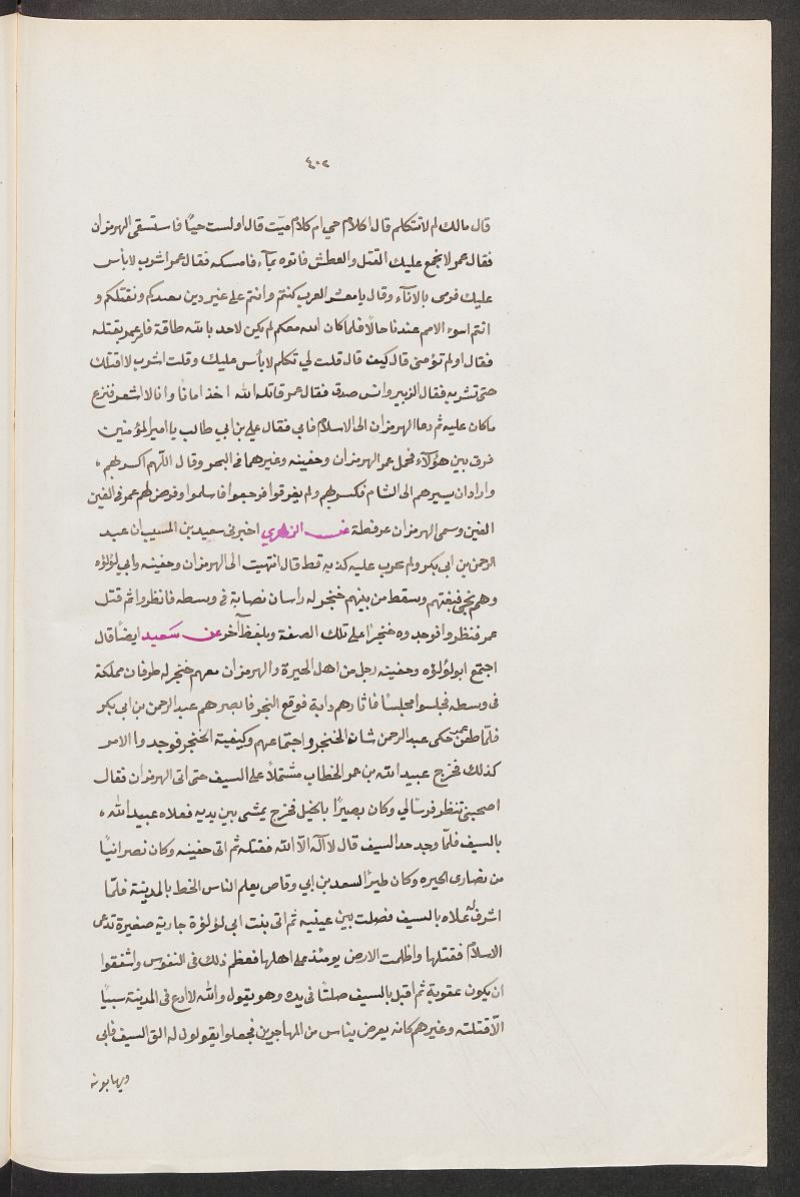 ٤٠٢
قال مالك لم لا تتكلم قال اكلام حي ام كلام ميت قال اولست حيًا فاستسقى الهرمزان
فقال عمر لا نجمع عليك القتل والعطش فاتوه بمآء فامسكه فقال عمر اشرب لا بأس
عليك فرمى بالانآء وقال يا معشر العرب كنتم وانتم على غير دين نعبدكم ونقتلكم و
انتم اسوء الامم عندنا حالًا فلما كان الله معكم لم يكن لاحد بالله طاقة فامر عمر بقتله
فقال اولم تؤمنى قال كيف قال قلت لي تكلم لا بأس عليك وقلت اشرب لا اقتلك
حتى تشربه فقال الزبير وانس صدق فقال عمر قاتله الله اخذ امانا وانا لا اشعر فنزع
ماكان عليه ثم دعا الهرمزان الى الاسلام فابى فقال علي بن ابي طالب يا امير المؤمنين
فرق بين هؤلآء فحمل عمر الهرمزان وجفينه وغيرهما فى البحر وقال اللهم اكسر بهم
واراد ان يسيرهم الى الشام فكسر بهم ولم يغرقوا فرجعوا فاسلموا وفرض لهم عمر فى الفين
الفين وسمى الهرمزان عرفطة عن الزهري اخبرنى سعيد بن المسيب ان عبد
الرحمن بن ابى بكر ولم يجرب عليه كذبه قط قال انتهيت الى الهرمزان وجفينه وابي لؤلؤه
وهم نجي فبغتهم وسقط من بينهم خنجر له راسان نصابه فى وسطه فانظروا بم قتل
عمر فنظروا فوجدوه خنجرًا على تلك الصفة وبلفظ آخر عن سعيد ايضًا قال
اجتمع ابو لؤلؤه وجفينه رجل من اهل الحيرة والهرمزان معهم خنجر له طرفان مملكة
فى وسطه فجلسوا مجلسًا فاثارهم دابة فوقع الخنجر فابصرهم عبد الرحمن بن ابى بكر
فلمّا طعن عمر حكى عبد الرحمن شان الخنجر واجتماعهم وكيفية الخنجر فوجدوا الامر
كذلك فخرج عبيد الله بن عمر الخطاب مشتملًا على السيف حتى اتى الهرمزان فقال
اصحبنى تنظر فرسًا لي وكان بصيرًا بالخيل فخرج يمشى بين يديه فعلاه عبيد الله
بالسيف فلمّا وجد حد السيف قال لا آله الّا الله فقتله ثم اتى جفينه وكان نصرانيًا
من نصارى الحيره وكان ظيرًا لسعد بن ابي وقاص يعلم الناس الخط بالمدينة فلمّا
اشرف له علاه بالسيف فصلت بين عينيه ثم اتى بنت ابى لؤلؤة جارية صغيرة تدعى
الاسلام فقتلها واظلمت الارض يومئذ على اهلها فعظم ذلك فى النفوس واشفقوا
ان يكون عقوبة ثم اقبل بالسيف صلتًا فى يده وهو يقول والله لا ادع فى المدينة سبيًا
الّا قتلته وغيرهم كانه يعرض بناس من المهاجرين فجعلوا يقولون له الق السيف فابى
ويهابونه